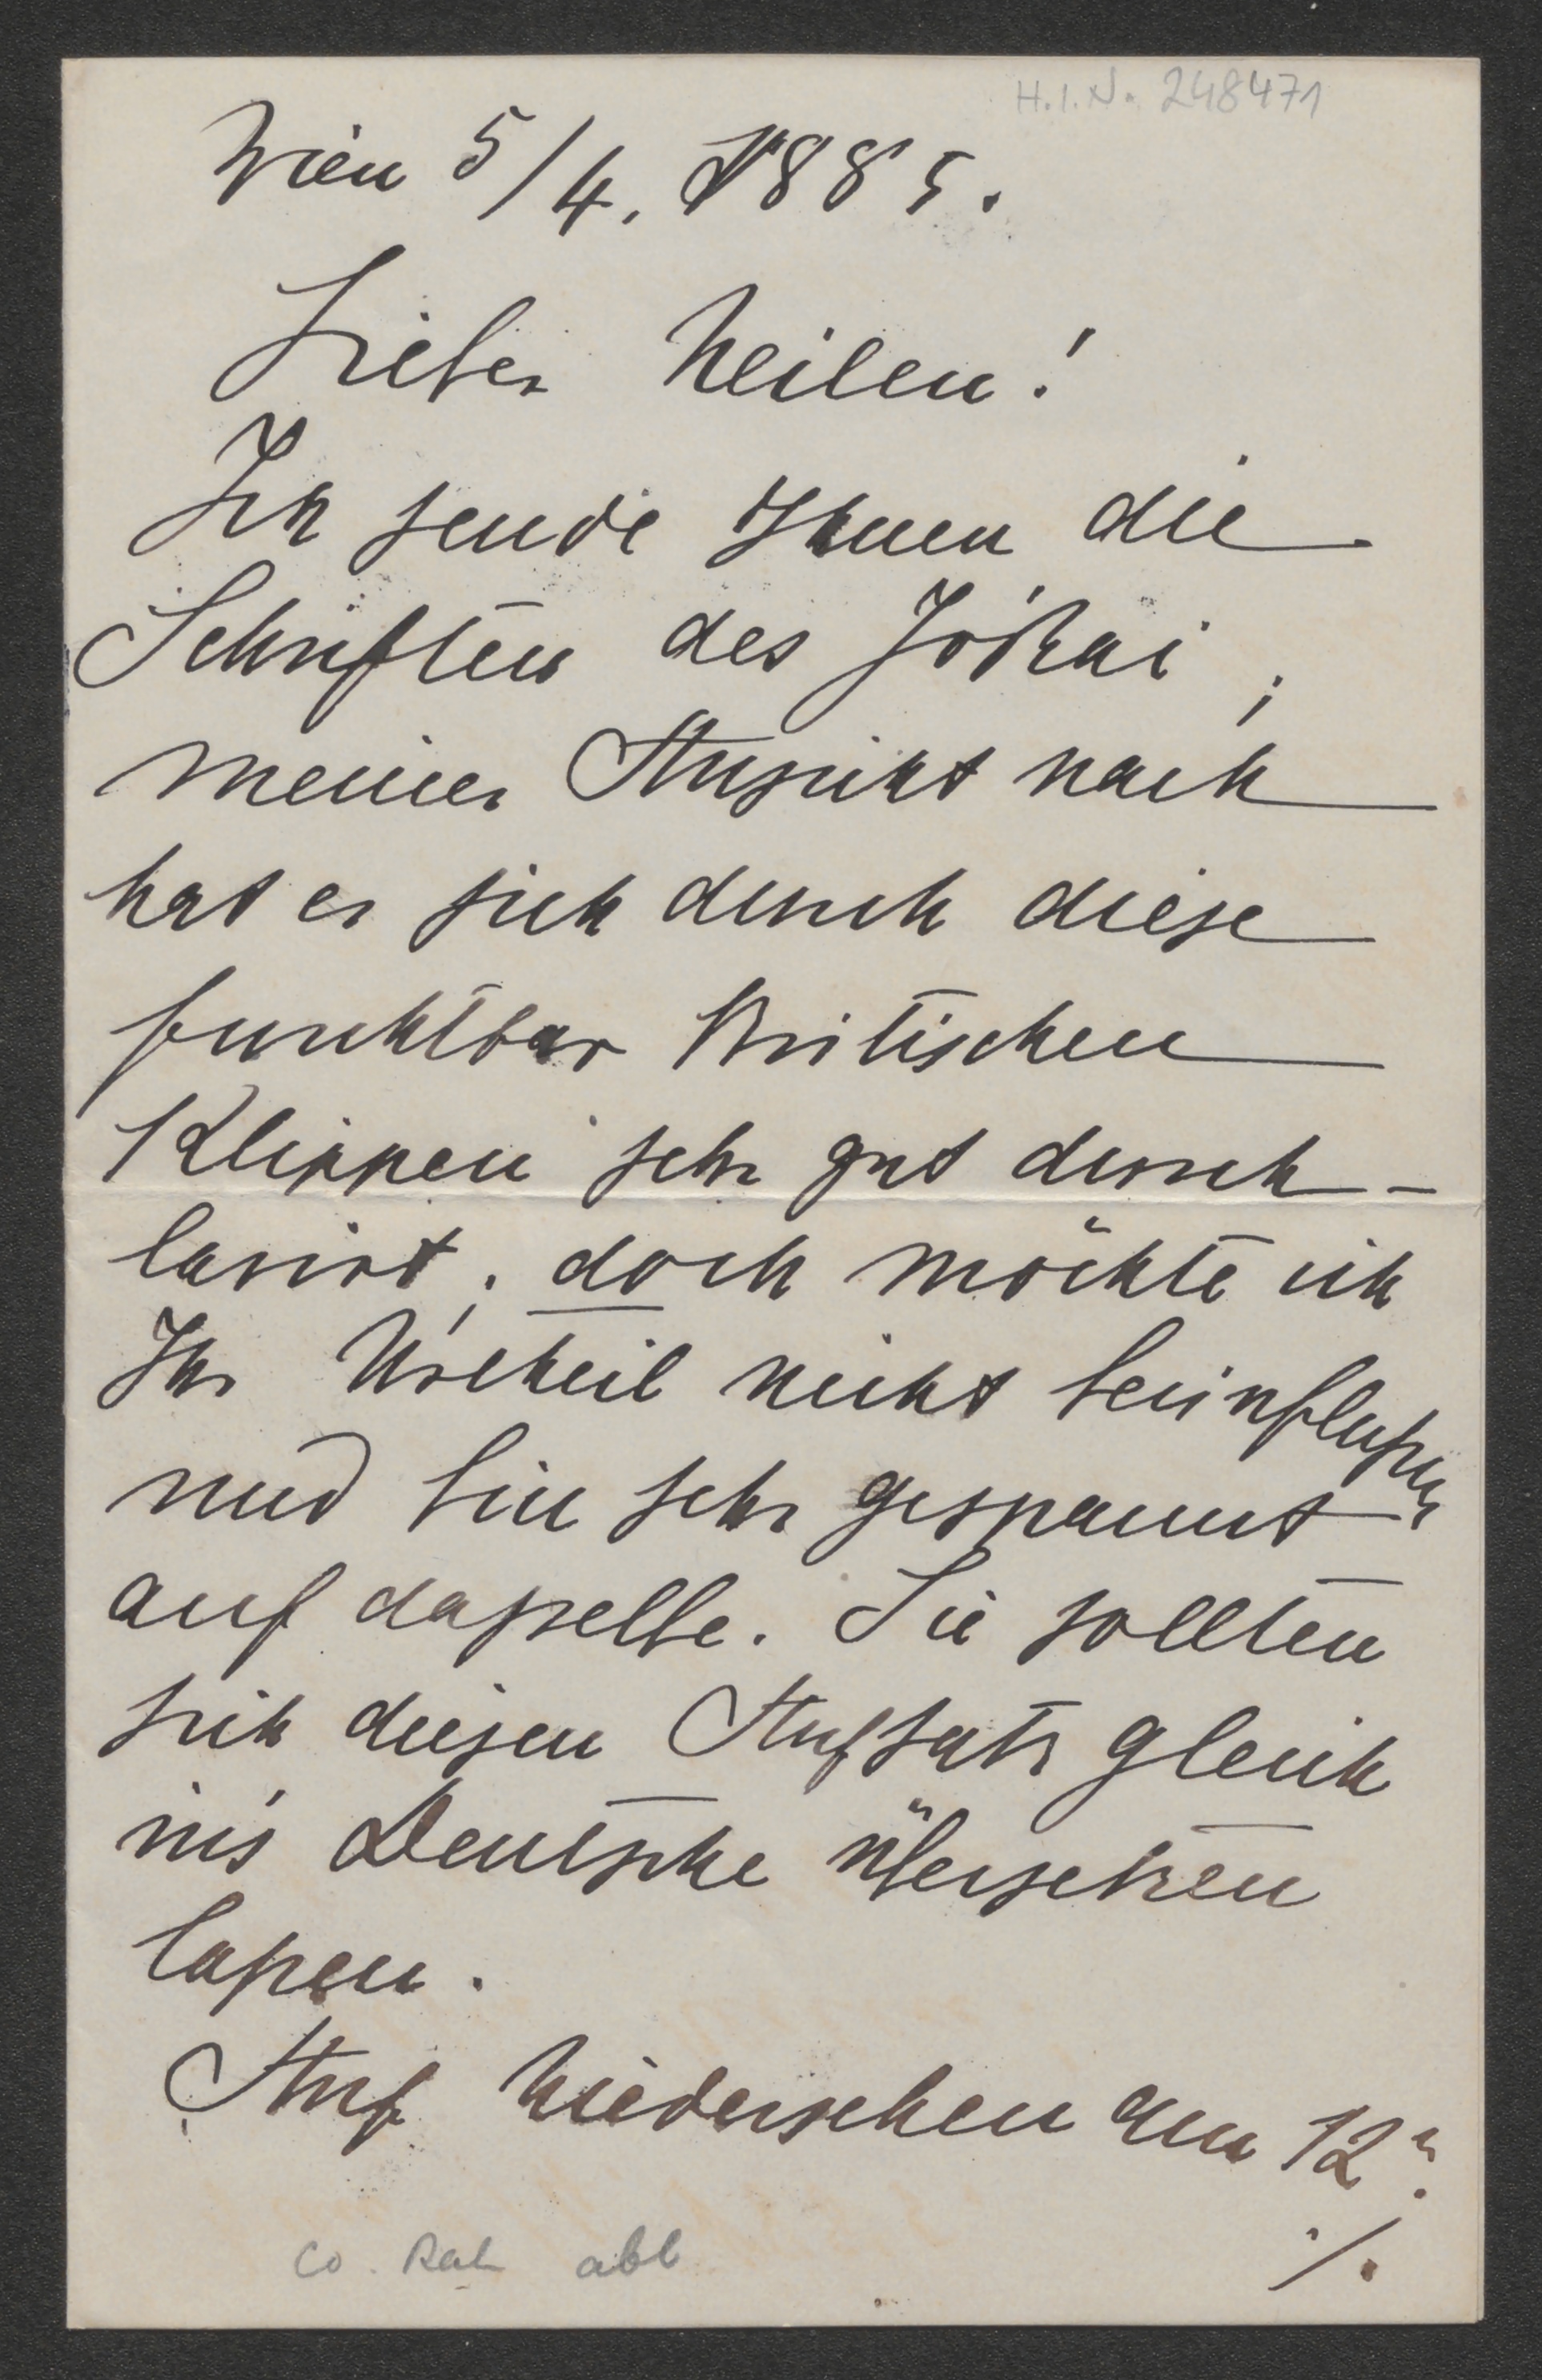 H.I.N. 248471
Wien 5/4. 1885.
Lieber Weilen!
Ich sende Ihnen die
Schriften des Jókai;
meiner Ansicht nach
hat er sich durch diese
furchtbar kritischen
Klippen sehr gut durch-
lavirt; doch möchte ich
Ihr Urtheil nicht beinflußen
und bin sehr gespannt
auf daßelbe. Sie sollten
sich diesen Aufsatz gleich
in's Deutsche übersetzen
laßen.
Auf Wiedersehen am 12n.
./.